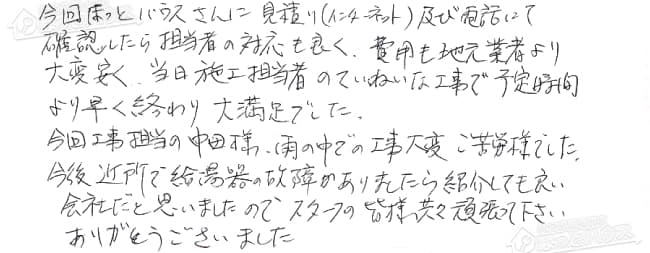 今回ほっとハウスさんに見積り(インターネット)及び電話にて
確認したら担当者の対応も良く、費用も地元業者より
大変安く、当日施工担当者のていねいな工事で予定時間
より早く終わり大満足でした。
今回工事担当の中田様、雨の中での工事大変ご苦労様でした。
今後近所で給湯器の故障がありましたら紹介しても良い
会社だと思いましたのでスタッフの皆様共々頑張って下さい
ありがとうございました